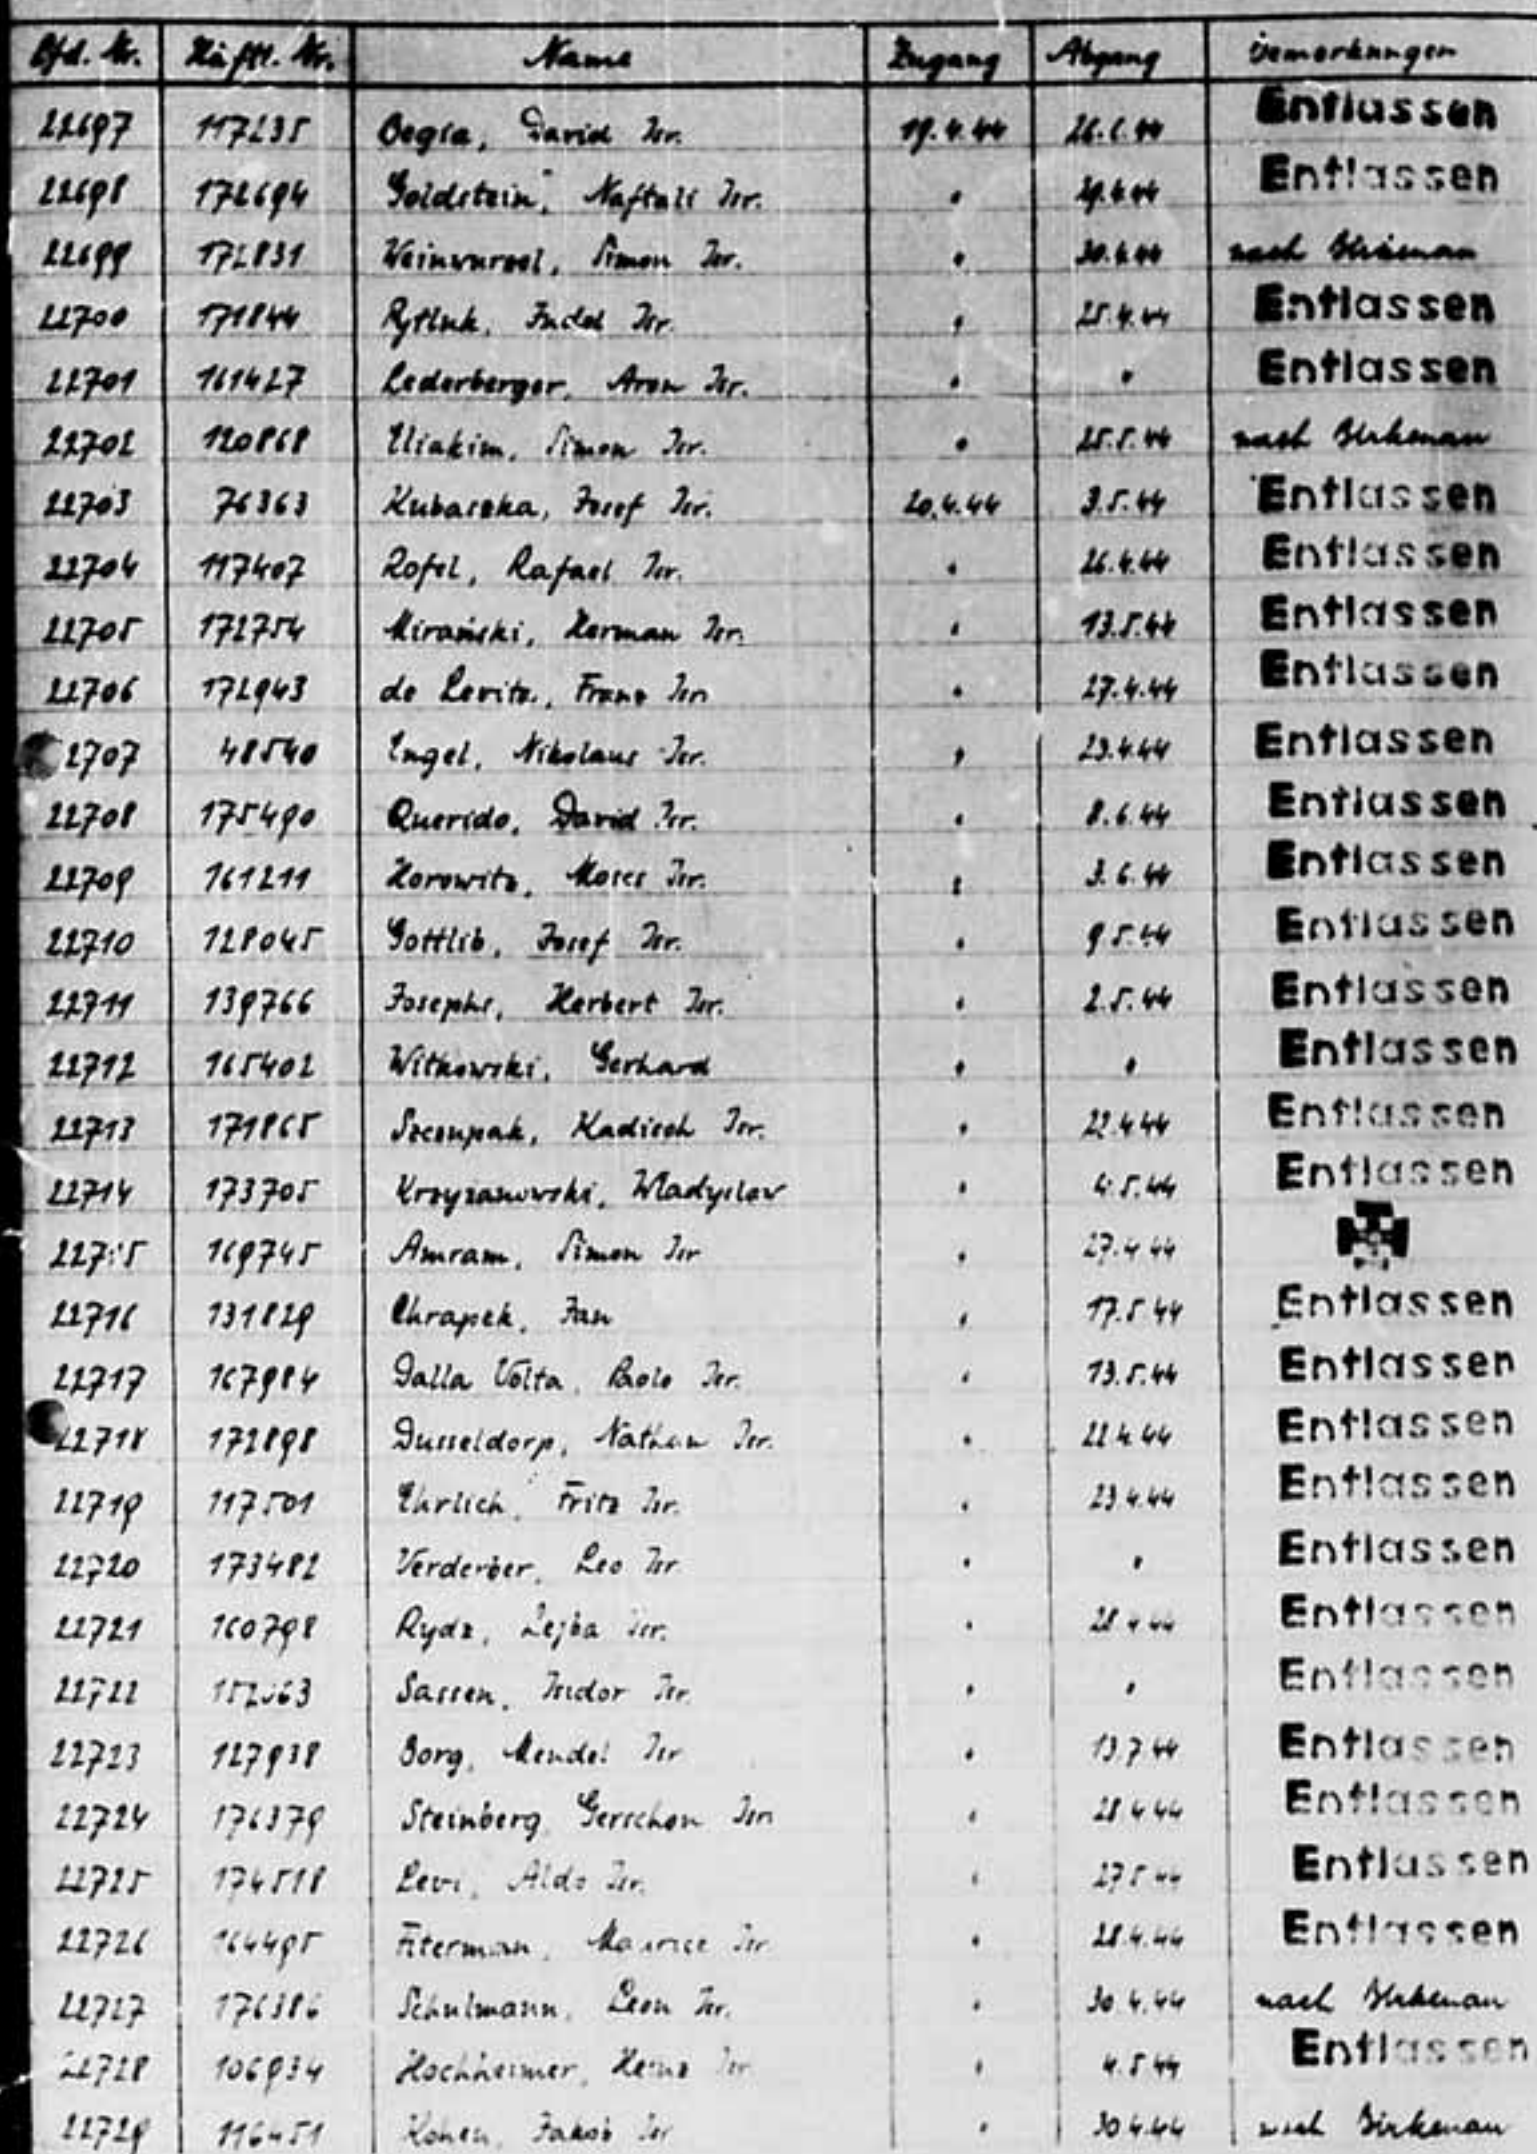 Lfd. Nr. Häftl. Nr. Name Zugang Abgang Bemerkungen
22697 117235 Begla, David Isr. 19.4.44 Entlassen
22698 172694 Goldstein, Naftali Isr. " 29.4.44 Entlassen
22699 172831 Weinwurzel, Simon Isr. " 30.4.44 nach Birkenau
22700 171844 Judel Isr. " 25.4.44 Entlassen
22701 161427 Lederberger, Aron Isr. " " Entlassen
22702 120868 Eliakim, Simon Isr. " 25.5.44 nach Birkenau
22703 76363 Kubaszka, Josef Isr. 20.4.44 3.5.44 Entlassen
22704 117407 Rofel, Rafael Isr. " 26.4.44 Entlassen
22705 172754 Mirański, Herman Isr. " 13.5.44 Entlassen
22706 172943 de Levita, Frans Isr. " 27.4.44 Entlassen
2707 48540 Engel, Nikolaus Isr. " 23.4.44 Entlassen
22708 175490 Querido, David Isr. " 8.6.44 Entlassen
22709 161211 Horowitz, Moses Isr. " 3.6.44 Entlassen
22710 128045 Gottlib, Josef Isr. " 9.5.44 Entlassen
22711 139766 Josephs, Herbert Isr. " 2.5.44 Entlassen
22712 165402 Witkowski, Gerhard " " Entlassen
22713 171865 Szczupak, Kadisch Isr. " 22.4.44 Entlassen
22714 173705 Krzyzanowski, Wladyslaw " 4.5.44 Entlassen
22715 169745 Amram, Simon Isr " 27.4.44
22716 131829 Chrapek, Jan " 17.5.44 Entlassen
22717 167984 Dalla Volta, Paolo Isr. " 13.5.44 Entlassen
22718 172898 Dusseldorp, Nathan Isr. " 22.4.44 Entlassen
22719 117501 Ehrlich, Fritz Isr. " 23.4.44 Entlassen
22720 173482 Verderber, Leo Isr " " Entlassen
22721 160798 Rydz, Lejba Isr. " 28.4.44 Entlassen
22722 Sassen, Isidor Isr. " " Entlassen
22723 127938 Borg, Mendel Isr " 13.7.44 Entlassen
22724 176379 Steinberg, Gerschon Isr. " 28.4.44 Entlassen
22725 174518 Levi, Aldo Isr. " 27.5.44 Entlassen
22726 164495 Fiterman, Maurice Isr " 28.4.44 Entlassen
22727 176386 Schulmann, Leon Isr. " 30.4.44 nach Birkenau
22728 106934 Hochheimer, Heinz Isr " 4.5.44 Entlassen
22729 116451 Kohen, Jakob Isr " 30.4.44 nach Birkenau